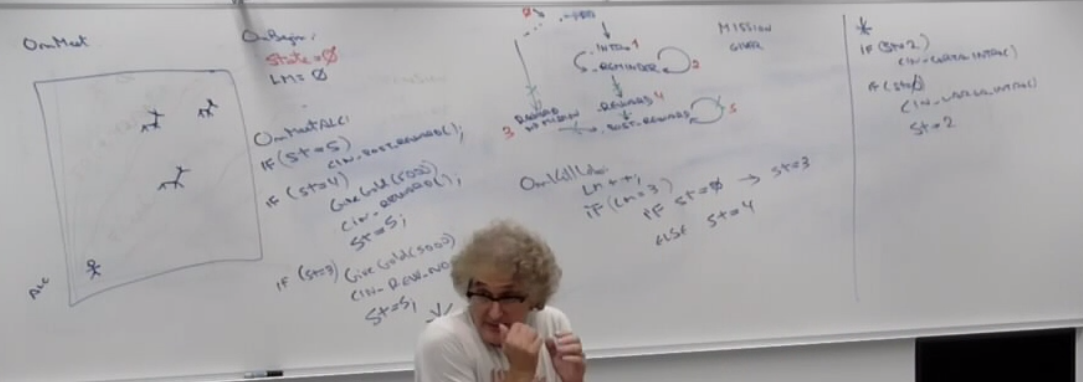 OnMeet
ALC
OnBegin:
State=Ø
LM=Ø
OnMeetALC:
IF(St=5)
CIN_POST_REWARD();
IF(St=4)
GiveGold(5000)
CIN_REWARD();
St=5;
IF(St=3) GiveGold(5000)
CIN_REW_NO
St=5;
INTRO 1
REMINDER 2
3 REWARD
NO MISSION
REWARD 4
POST_REWARD 5
MISSION
GIVER
Lm++;
IF(Lm=3)
IF St=Ø → St=3
ELSE St=4
*
IF(St=2)
IF(St=Ø)
St=2